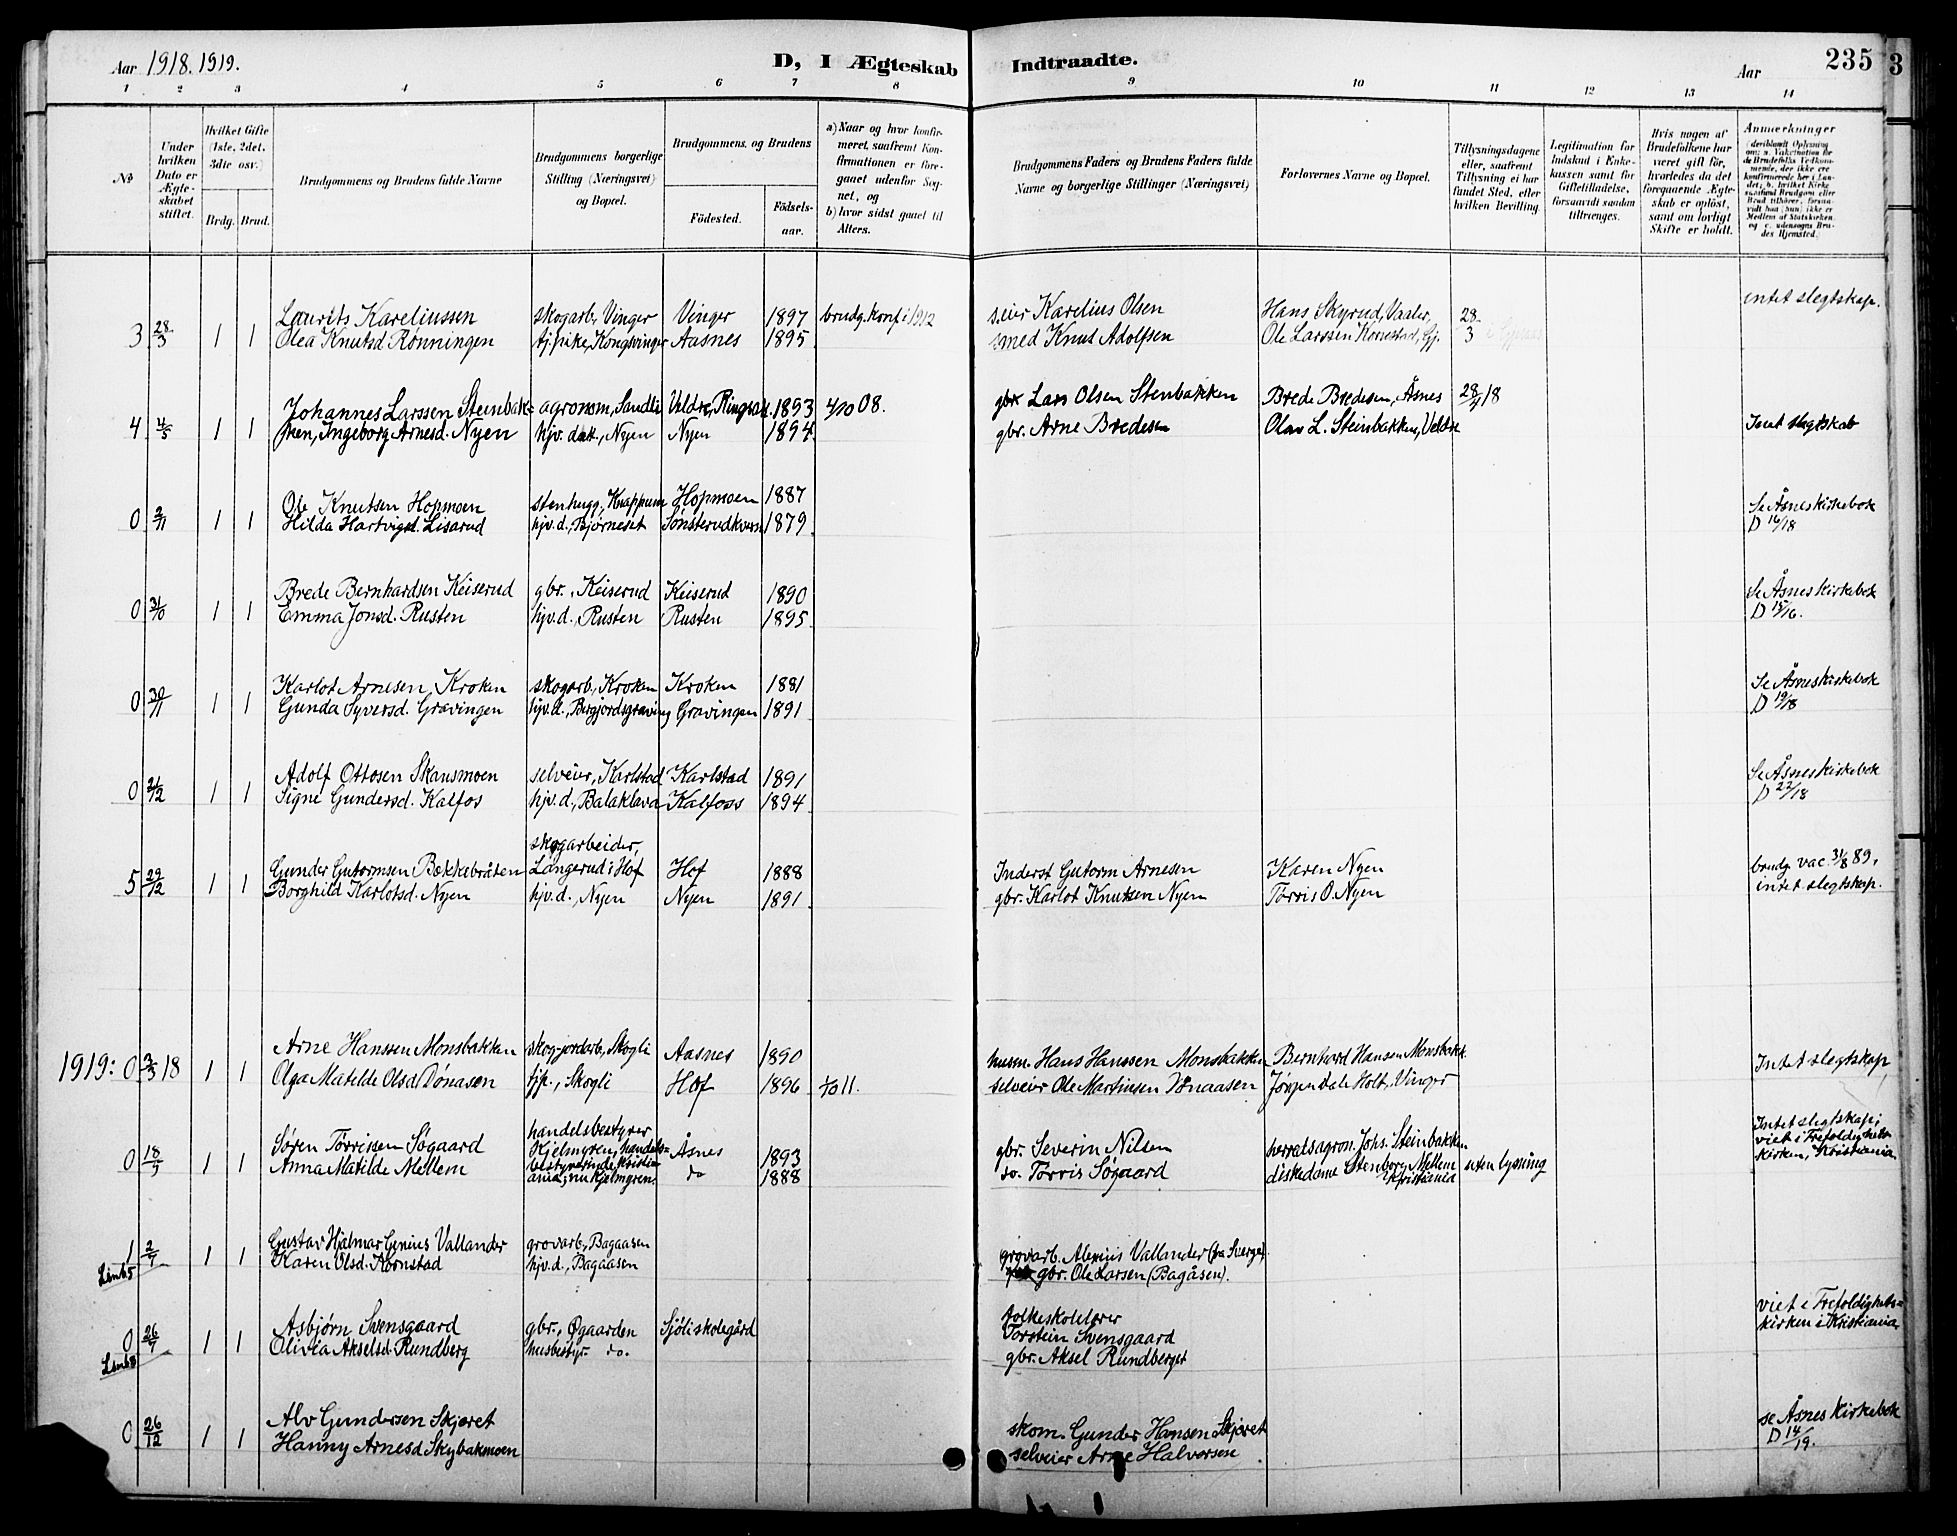 Aar 1918. 1919.
D, I Ægteskab Indtraadte.
Aar
235
3
1 2 3 4 5 6 7 8 9 10 11 12 13 14
No
Under hvilken Dato er Ægteskabet stiftet.
Hvilket Gifte (1ste, 2det, 3die osv.)
Brdg. Brud.
Brudgommens og Brudens fulde Navne
Brudgommens borgerlige Stilling (Næringsvei) og Bopæl.
Brudgommens, og Brudens
Födested.
Födsels-aar.
a) Naar og hvor konfirmeret, saafremt Konfirmationen er foregaaet udenfor Sognet, og
b) hvor sidst gaaet til Alters.
Brudgommens Faders og Brudens Faders fulde Navne og borgerlige Stillinger (Næringsvei)
Forlovernes Navne og Bopæl.
Tillysningsdagene eller, saafremt Tillysning ei har fundet Sted, efter hvilken Bevilling.
Legitimation for Indskud i Enkekassen samt for Giftetilladelse, forsaavidt saadan tiltrænges.
Hvis nogen af Brudefolkene har været gift før, hvorledes da det foregaaende Ægteskab er oplöst, samt om lovligt Skifte er holdt.
Anmerkninger (deriblandt Oplysning om: a. Vakcination for de Brudefolks Vedkommende, der ikke ere konfirmerede her i Landet; b. hvilket Kirkesamfund Brudgom eller Brud tilhörer, forsaavidt han (hun) ikke er Medlem af Statskirken, og c. udensogns Brudes Hjemsted.
3 28/3 1 1 Laurits Kareliussen skogarb., Vinger Vinger 1897 brudg. konf. i 1912 s.eier Karelius Olsen Hans Skyrud, Vaaler, 28/3 intet slegtskap.
Olea Knutsd. Rönningen tj.pike, Kongsvinger Aasnes 1895 smed Knut Adolfsen Ole Larssen Kornstad, Gj.
4 4/5 1 1 Johannes Larssen Steinbak= agronom, Sandli Veldre, Ringsak. 1893 4/10 08. gbr. Lars Olsen Stenbakken Brede Bredesen, Åsnes 28/4 18
ken, Ingeborg Arnesd. Nyen hjv. dat., Nyen Nyen 1894 gbr. Arne Bredesen Olav L. Steinbakken, Veldre Intet slegtskab
0 2/11 1 1 Ole Knutsen Hopmoen stenhugg., Knappum Hopmoen 1887 Se Åsnes kirkebok
Hilda Hartvigsd. Lisarud hjv. d., Bjørneset Sönsterudkvern 1879 D 16/18
0 31/10 1 1 Brede Bernhardsen Keiserud gbr., Keiserud Keiserud 1890 Se Åsnes kirkebok
Emma Jonsd. Rusten hjv. d., Rusten Rusten 1895 D 15/16.
0 30/11 1 1 Karlot Arnesen, Kroken skogarb., Kroken Kroken 1881 Se Åsnes kirkebok
Gunda Syversd. Gravingen hjv. d., Bergjordsgraving Gravingen 1891 D 19/18
0 21/12 1 1 Adolf Ottosen Skansmoen selveier, Karlstad Karlstad 1891 Se Åsnes kirkebok
Signe Gundersd. Kalfos hjv. d., Balaklava Kalfoss 1894 D 22/18
skogarbeider,
5 29/12 1 1 Gunder Gutormsen Bækkebråten Langerud i Hof Hof 1888 Inderst Gutorm Arnesen Karen Nyen brudg. vac. 31/8 89,
Borghild Karlotsd. Nyen hjv. d., Nyen Nyen 1891 gbr. Karlot Knutsen Nyen Tørris O. Nyen intet slegtskap.
1919: 0 2/3 18 1 1 Arne Hanssen Monsbakken skog-jordarb., Skogli Aasnes 1890 husm. Hans Hanssen Monsbakken Bernhard Hansen Monsbakk. Intet slegtskap
Olga Matilde Olsd. Dönaasen tjp., Skogli Hof 1896 1/10 11. selveier Ole Martinsen Dönaasen Jörgen Dale Holt, Vinger
handelsbestyrer Intet slegtskap;
0 18/5 1 1 Søren Tørrissen Søgaard Kjelmyren, handels= Åsnes 1893 gbr. Severin Nilsen herredsagron. Johs. Steinbakken viet i Trefoldighets=
Anna Matilde Mellem bestyrerinde, Kristiania; nu Kjelmyren. do 1888 do. Tørris Søgaard diskedame Stenborg Mellem Kristiania uten lysning kirken, Kristiania
1 2/7 1 1 Gustav Hjalmar Genius Vallander grovarb., Bagaasen grovarb. Alexius Vallander (fra Sverge)
Karen Olsd. Kornstad hjv. d., Bagaasen gbr. Ole Larsen (Bagåsen).
0 26/7 1 1 Asbjørn Svensgaard gbr., Øgaarden Sjöli skolegård folkeskolelærer Torstein Svensgaard viet i Trefoldighets=
Olivia Akselsd. Rundberg husbestyr do. gbr. Aksel Rundberget kirken i Kristiania
0 26/12 1 1 Alv Gundersen Skjæret skom. Gunder Hansen Skjæret se Åsnes kirkebok
Hanny Arnesd Skybakmoen selveier Arne Halvorsen D 14/19.